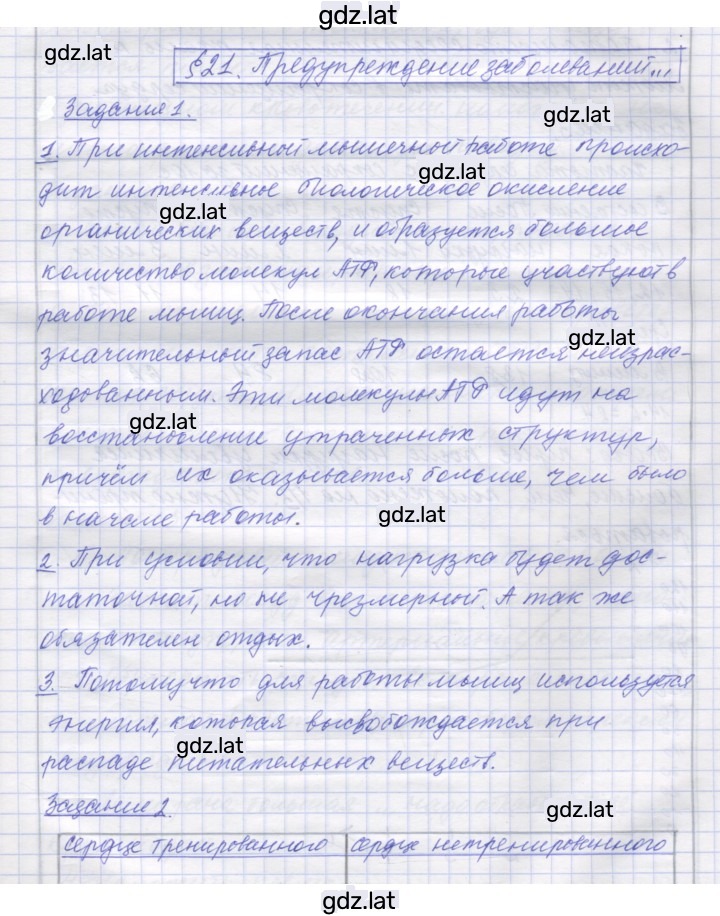 gdz.lat
gdz.lat
§21. Предупреждение заболеваний...
Задание 1.
gdz.lat
1. При интенсивной мышечный работе происхо-
gdz.lat
дит интенсивное биологическое окисление
gdz.lat
органических веществ, и образуется большое
количество молекул АТФ, которые участвуют в
работе мышц. После окончания работы
gdz.lat
значительный запас АТФ остается неизрас-
ходованным. Эти молекулы АТФ идут на
gdz.lat
восстановление утраченных структур,
причём их оказывается больше, чем было
в начале работы.
gdz.lat
2. При условии, что нагрузка будет дос-
таточной, но не чрезмерной. А так же
обязателен отдых.
3. Потому что для работы мышц используется
энергия, которая высвобождается при
gdz.lat
распаде питательных веществ.
Задание 2.
gdz.lat
сердце тренированного
сердце нетренированного
gdz.lat